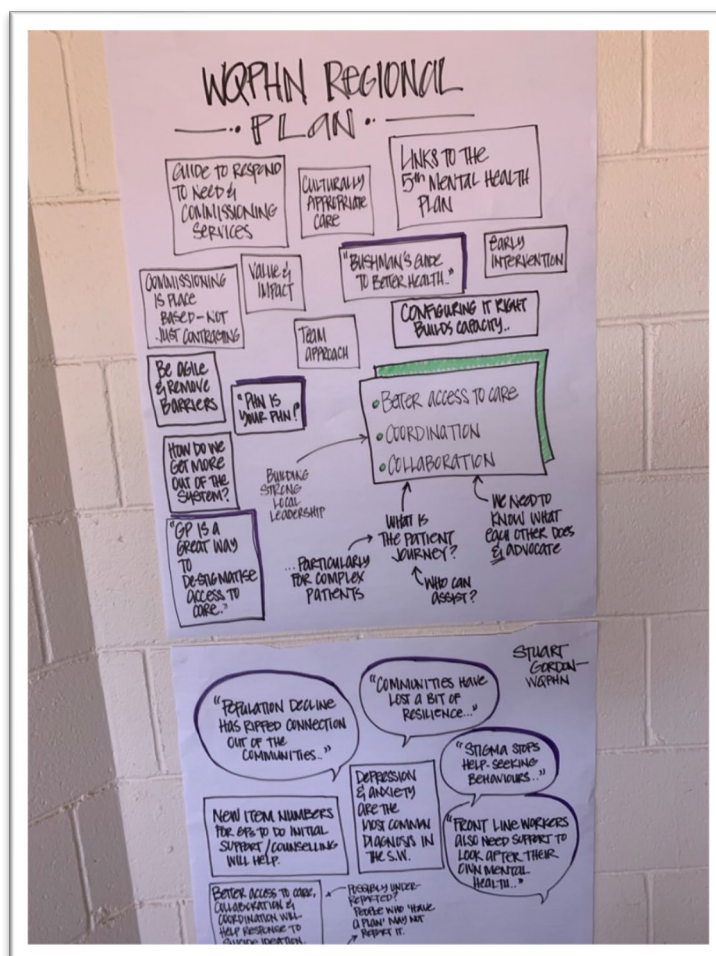 WQPHN REGIONAL
PLAN
GUIDE TO RESPOND
TO NEED &
COMMISSIONING
SERVICES
CULTURALLY
APPROPRIATE
CARE
LINKS TO THE
5th MENTAL HEALTH
PLAN
COMMISSIONING
IS PLACE
BASED - NOT
JUST CONTRACTING
VALUE &
IMPACT
"BUSHMAN'S GUIDE
TO BETTER HEALTH.."
EARLY
INTERVENTION
CONFIGURING IT RIGHT
BUILDS CAPACITY..
TEAM
APPROACH
BE AGILE
& REMOVE
BARRIERS
"PHN IS
YOUR PHN!"
• BETTER ACCESS TO CARE
• COORDINATION
• COLLABORATION
HOW DO WE
GET MORE
OUT OF THE
SYSTEM?
BUILDING
STRONG
LOCAL
LEADERSHIP
"GP IS A
GREAT WAY
TO
DE-STIGMATISE
ACCESS TO
CARE."
WHAT IS
THE PATIENT
JOURNEY?
...PARTICULARLY
FOR COMPLEX
PATIENTS
WHO CAN
ASSIST?
WE NEED TO
KNOW WHAT
EACH OTHER DOES
& ADVOCATE
STUART
GORDON-
WQPHN
"POPULATION DECLINE
HAS RIPPED CONNECTION
OUT OF THE
COMMUNITIES.."
"COMMUNITIES HAVE
LOST A BIT OF
RESILIENCE..."
"STIGMA STOPS
HELP-SEEKING
BEHAVIOURS..."
DEPRESSION
& ANXIETY
ARE THE
MOST COMMON
DIAGNOSIS IN
THE S.W.
NEW ITEM NUMBERS
FOR GPs TO DO INITIAL
SUPPORT/COUNSELLING
WILL HELP.
"FRONT LINE WORKERS
ALSO NEED SUPPORT TO
LOOK AFTER THEIR
OWN MENTAL
HEALTH..."
BETTER ACCESS TO CARE,
COLLABORATION &
COORDINATION WILL
HELP RESPONSE TO
SUICIDE IDEATION.
POSSIBLY UNDER-
REPORTED?
PEOPLE WHO 'HAVE
A PLAN' MAY NOT
REPORT IT.